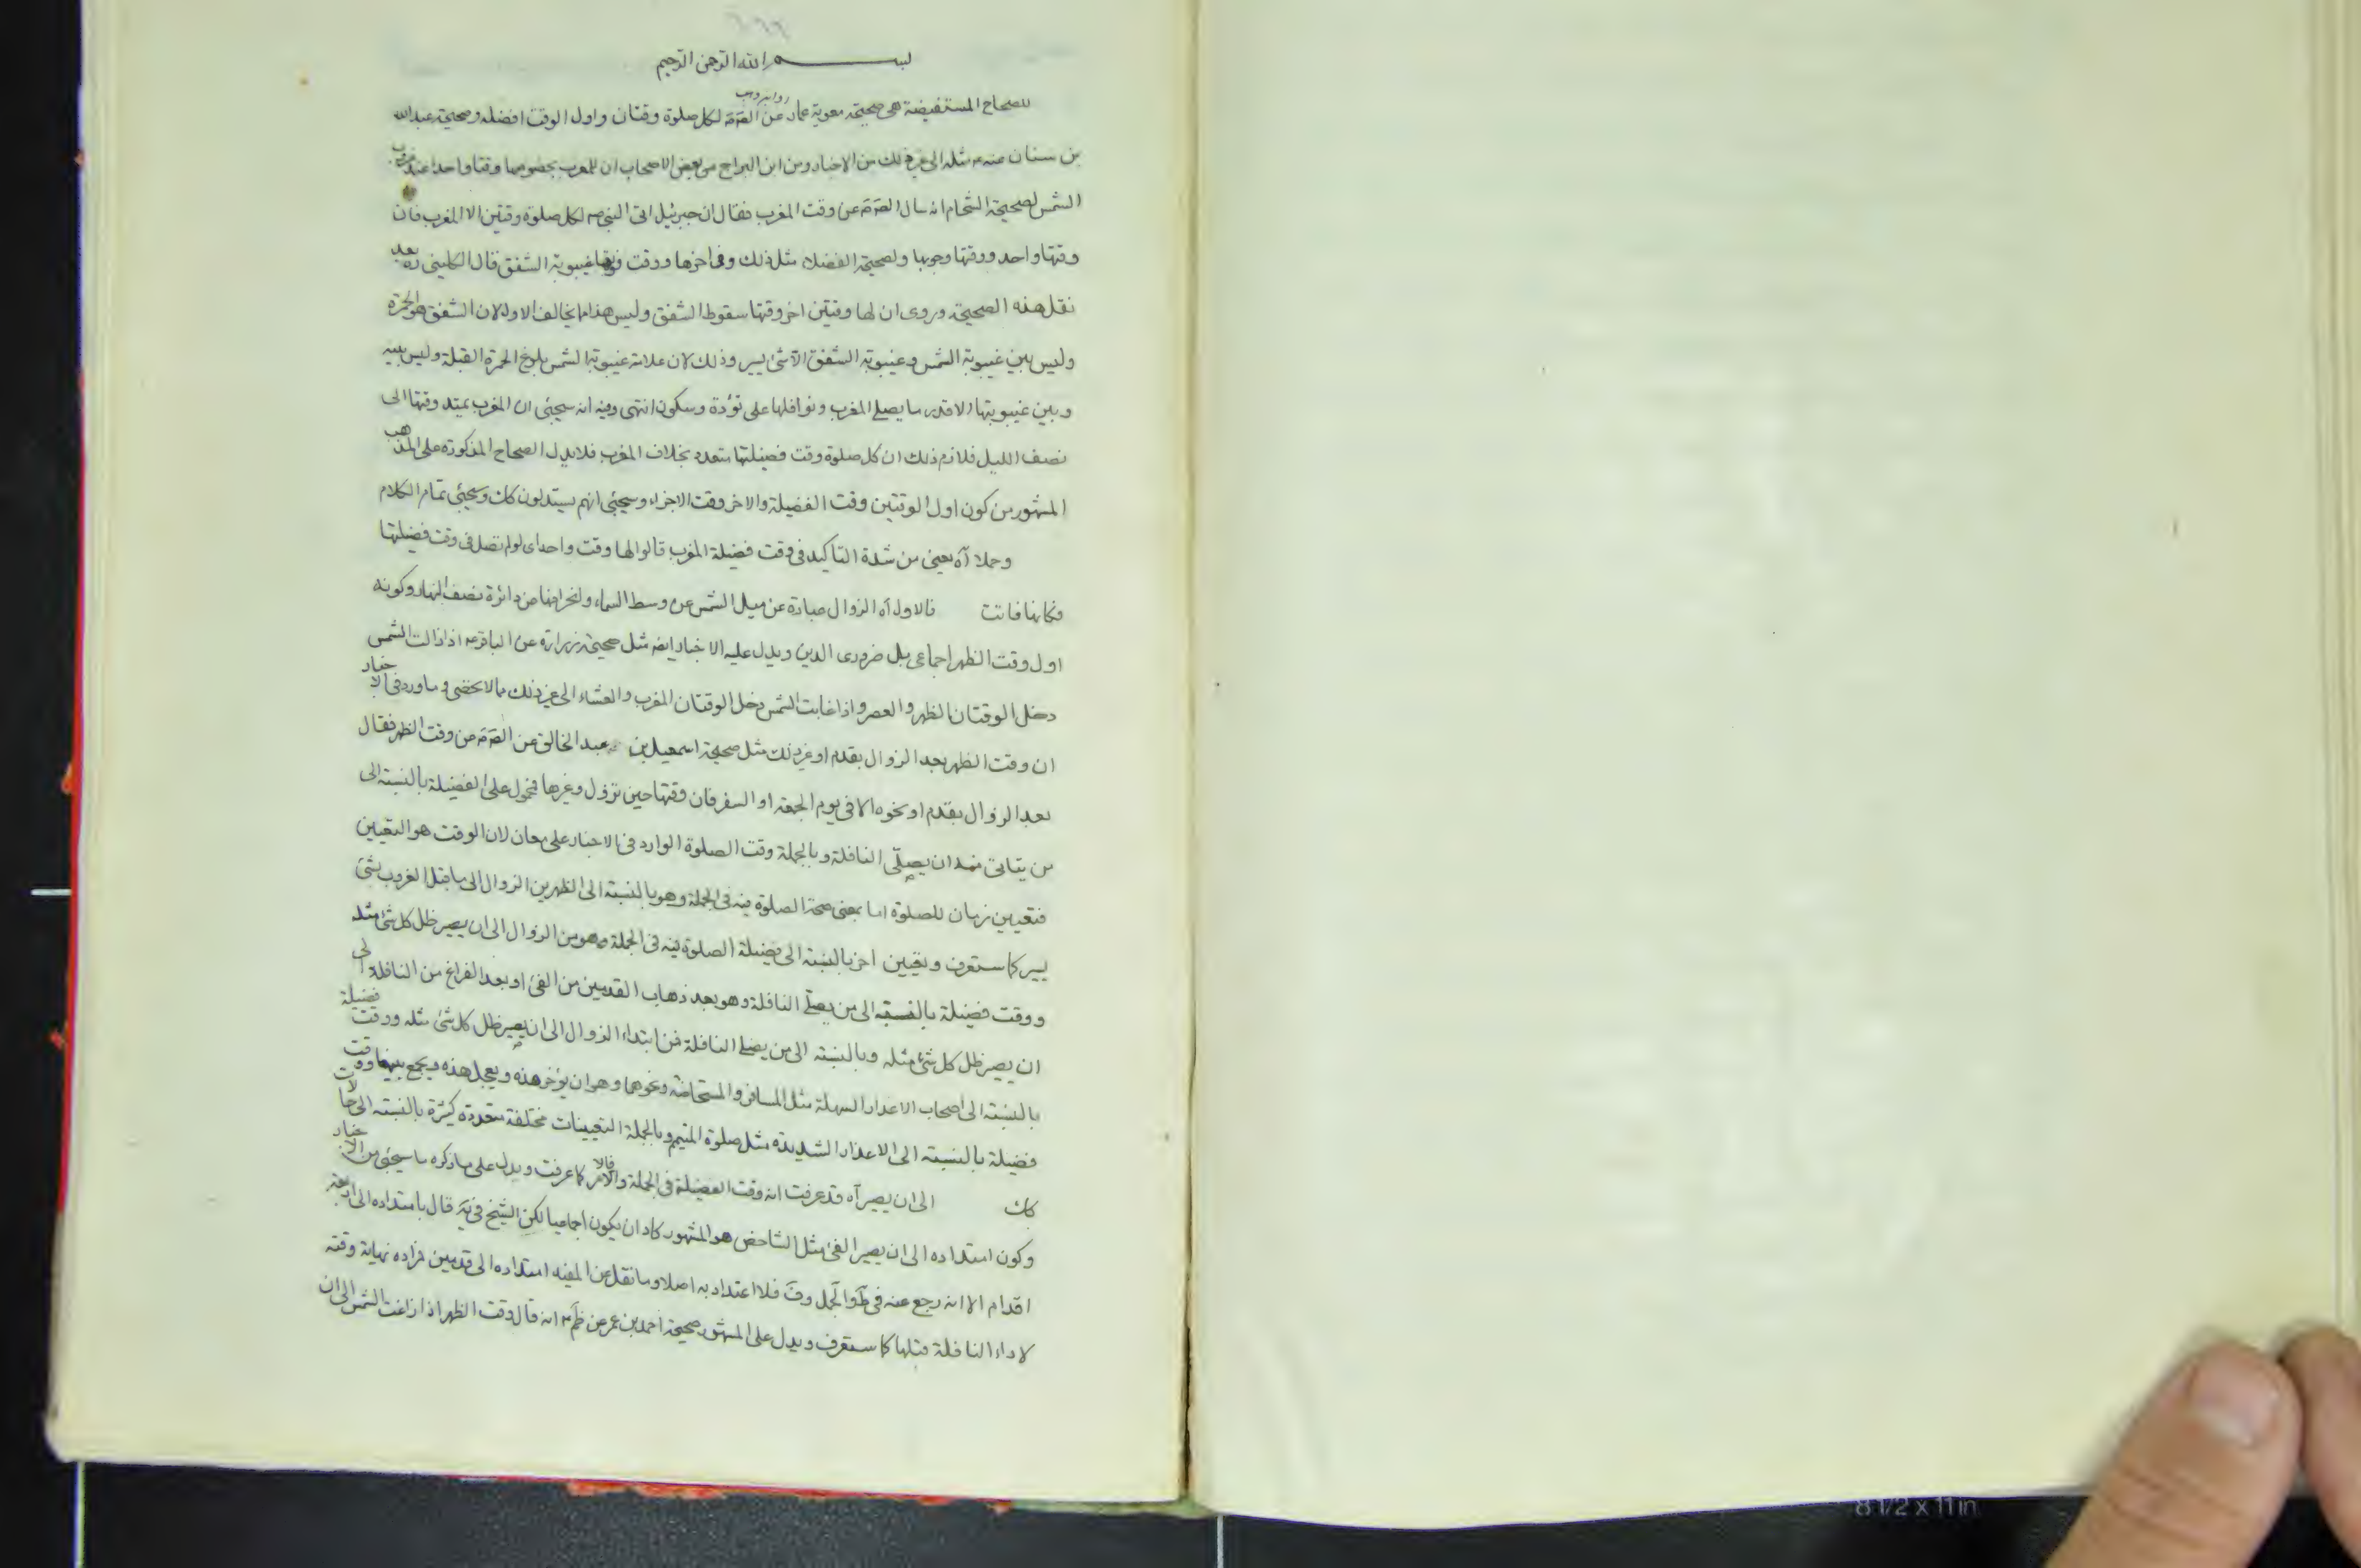 بسم الله الرحمن الرحيم
للصحاح المستفيضة هى صحيحة معوية عمار عن الصّ لكل صلوة وقتان واول الوقت افضله وصحيحة عبدالله
بن سنان عنه مثله الى غير ذلك من الاخبار ومن ابن البراج من بعض الاصحاب ان للمغرب بخصوصها وقتا واحدا عند غروب
الشمس لصحيحة الشحام انه سال الصّ عن وقت المغرب فقال ان جبرئيل اتى النبى صه لكل صلوة وقتين الا المغرب فان
وقتها واحد ووقتها وجوبها ولصحيحة الفضلاء مثل ذلك وفى اخرها ووقت فوتها غيبوبة الشفق قال الكلينى ره بعد
نقل هذه الصحيحة وروى ان لها وقتين اخر وقتها سقوط الشفق وليس هذا مما يخالف الاول لان الشفق هو الحمرة
وليس بين غيبوبة الشمس وغيبوبة الشفق الا شئ يسير وذلك لان علامة غيبوبة الشمس بلوغ الحمرة القبلة وليس بينه
وبين غيبوبتها الا قدر ما يصلى المغرب ونوافلها على تؤدة وسكون انتهى وفيه انه سيجئى ان المغرب يمتد وقتها الى
نصف الليل فلازم ذلك ان كل صلوة وقت فضيلتها متعدد بخلاف المغرب فلا يدل الصحاح المذكورة على المذهب
المشهور من كون اول الوقتين وقت الفضيلة والاخر وقت الاجزاء وسيجئى انهم يستدلون كك وسيجئى تمام الكلام
وحملا آه يعنى من شدة التاكيد فى وقت فضيلة المغرب قالوا لها وقت واحد اى لو لم تصل فى وقت فضيلتها
فكانها فاتت فالاول آه الزوال عبارة عن ميل الشمس عن وسط السماء وانحرافها من دائرة نصف النهار وكونه
اول وقت الظهر اجماعى بل ضرورى الدين ويدل عليه الاخبار ايضا مثل صحيحة زرارة عن الباقر ع اذا زالت الشمس
دخل الوقتان الظهر والعصر واذا غابت الشمس دخل الوقتان المغرب والعشاء الى غير ذلك مما لا يحصى وما ورد فى الاخبار
ان وقت الظهر بعد الزوال بقدم او غير ذلك مثل صحيحة اسمعيل بن عبد الخالق عن الصّ عن وقت الظهر فقال
بعد الزوال بقدم او نحوه الا فى يوم الجمعة او السفر فان وقتها حين تزول وغيرها فمحمول على الفضيلة بالنسبة الى
من يتاتى منه ان يصلى النافلة وبالجملة وقت الصلوة الوارد فى الاخبار على معان لان الوقت هو التعيين
فتعيين زمان للصلوة اما بمعنى صحة الصلوة فيه فى الجملة وهو بالنسبة الى الظهرين الزوال الى ما قبل الغروب بشئ
يسير كما ستعرف وتعيين اخر بالنسبة الى فضيلة الصلوة فيه فى الجملة وهو من الزوال الى ان يصير ظل كل شئ مثله
ووقت فضيلة بالنسبة الى من يصلى النافلة وهو بعد ذهاب القدمين من الفئ او بعد الفراغ من النافلة الى
ان يصير ظل كل شئ مثله وبالنسبة الى من يصلى النافلة فمن ابتداء الزوال الى ان يصير ظل كل شئ مثله ووقت فضيلة
بالنسبة الى اصحاب الاعذار السهلة مثل المسافر والمستحاضة ونحوهما وهو ان يؤخر هذه ويعجل هذه ويجمع بينهما ووقت
فضيلة بالنسبة الى الاعذار الشديدة مثل صلوة المتيم وبالجملة التعيينات مختلفة متعددة كثيرة بالنسبة الى حالات
كك الى ان يصير آه قد عرفت انه وقت الفضيلة فى الجملة والامر كما عرفت ويدل على ما ذكره ما سيجئى من الاخبار
وكون امتداده الى ان يصير الفئ مثل الشاخص هو المشهور كاد ان يكون اجماعيا لكن الشيخ فى يه قال بامتداده الى اربعة
اقدام الا انه رجع عنه فى ط والجمل وف فلا اعتداد به اصلا وما نقل عن المفيد امتداده الى قدمين مراده نهاية وقته
لاداء النافلة قبلها كما ستعرف ويدل على المشهور صحيحة احمد بن عمر عن ظم ع انه قال وقت الظهر اذا زاغت الشمس الى ان